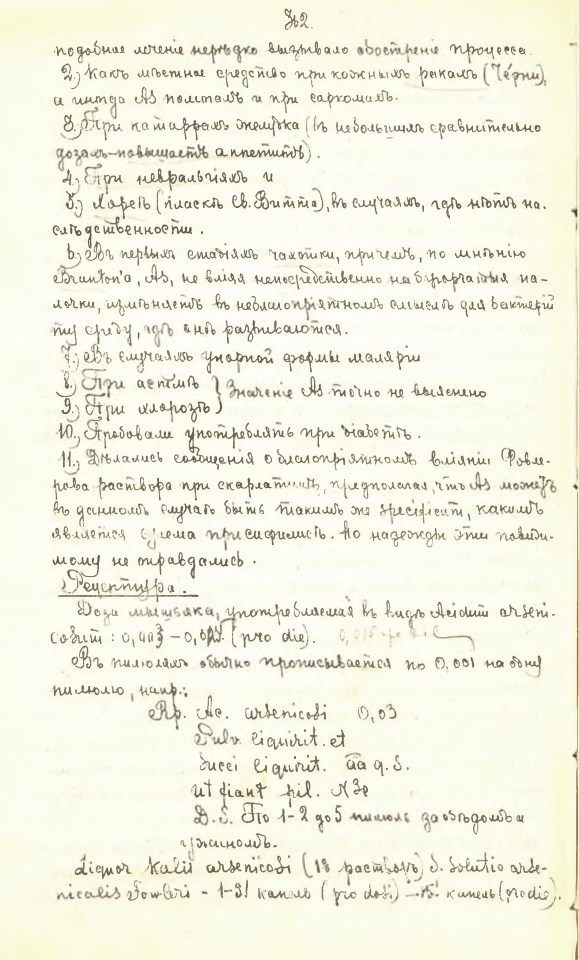 подобное леченіе нерѣдко вызывало обостреніе процесса.
2.) Какъ мѣстное средство при кожныхъ ракахъ (Че́рни),
а иногда As помогалъ и при саркомахъ.
3.) При катаррахъ желудка (въ небольшихъ сравнительно
дозахъ повышаетъ аппетитъ).
4.) При невральгіяхъ и
5.) Хореѣ (пляскѣ Св. Витта), въ случаяхъ, гдѣ нѣтъ на-
слѣдственности.
6.) Въ первыхъ стадіяхъ чахотки, причемъ, по мнѣнію
Brunton'а, As, не вліяя непосредственно на бугорчатыя па-
лочки, измѣняетъ въ неблагопріятномъ смыслѣ для бактерій
ту среду, гдѣ онѣ развиваются.
7.) Въ случаяхъ упорной формы маляріи
8.) При астмѣ } Значеніе As точно не выяснено
9.) При хлорозѣ
10.) Пробовали употреблять при діабетѣ.
11.) Дѣлались сообщенія о благопріятномъ вліяніи Фовле-
рова раствора при скарлатинѣ, предполагая, что As можетъ
въ данномъ случаѣ быть такимъ же specificum, какимъ
является при сифилисѣ. Но надежды эти повиди-
мому не оправдались.
Рецептура.
Доза мышьяка, употребляемая въ видѣ Acidum arseni-
cosum: (pro die).
Въ пилюляхъ обычно прописывается по 0,001 на одну
пилюлю, напр.:
Rp. Ac. arsenicosi 0,03
Pulv. liquirit. et
Succi liquirit. āā q. s.
ut fiant pil. N 30
D. S. По 1-2 до 5 пилюль за обѣдомъ и
ужиномъ.
Liquor Kalii arsenicosi (1% растворъ) S. Solutio arse-
nicalis Fowleri - 1-3! капель (pro dosi) - 15! капель (pro die).